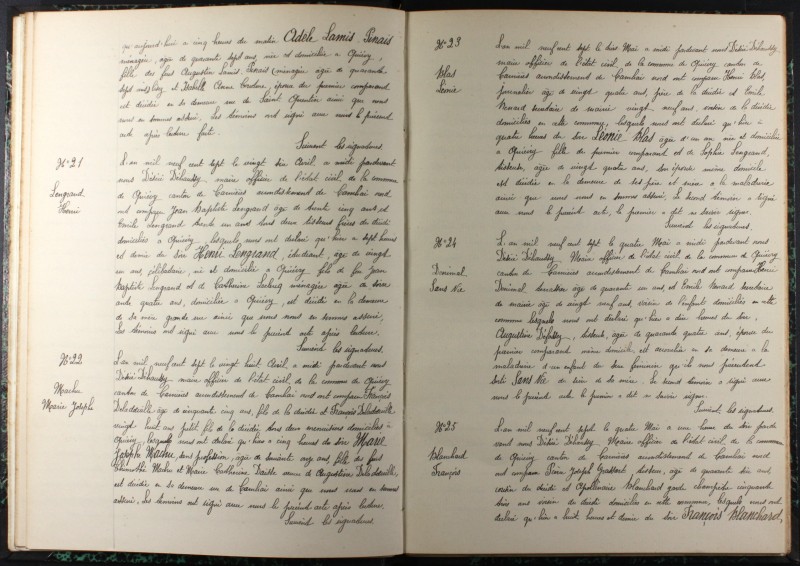 qu'aujourd'hui a cinq heures du matin Adèle Lamis Senais
ménagère, âgée de quarante sept ans, née et domiciliée a Quiévy,
fille des feus Augustin Lamis Senais ménagère âgée de quarante
sept ans et Isabelle Anne épouse du premier comparant
est décédée en sa demeure rue de Saint Quentin ainsi que nous
nous en sommes assuré, les témoins ont signé avec nous le présent
acte après lecture faite
Suivent les signatures.
N° 21
Lengrand
Henri
L'an mil neuf cent sept le vingt six Avril a midi pardevant
nous Désiré Délaussy maire officier de l'état civil de la commune
de Quiévy canton de Carnières arrondissement de Cambrai nord
ont comparu Jean Baptiste Lengrand âgé de trente cinq ans et
Emile Lengrand trente un ans tous deux tisseurs frères du décédé
domiciliés a Quiévy, lesquels nous ont déclaré qu'hier a sept heures
et demie du soir Henri Lengrand, étudiant, âgé de vingt
un ans, célibataire, né et domicilié a Quiévy fils de feu Jean
Baptiste Lengrand et de Catherine Leclercq ménagère âgée de soixante
quatre ans, domiciliée a Quiévy, est décédé en la demeure
de sa mère grande rue ainsi que nous nous en sommes assuré,
les témoins ont signé avec nous le présent acte après lecture.
Suivent les signatures.
N° 22
Machu
Marie Josèphe
L'an mil neuf cent sept le vingt huit Avril a midi pardevant nous
Désiré Délaussy maire officier de l'état civil de la commune de Quiévy
canton de Carnières arrondissement de Cambrai nord ont comparu François
Deladoeuille âgé de cinquante cinq ans, fils de la décédée et François Deladoeuille
vingt huit ans petit fils de la décédée, tous deux domiciliés a
Quiévy, lesquels nous ont déclaré qu'hier a cinq heures du soir Marie
Josèphe Machu sans profession, âgée de ans, fille des feus
Machu et Marie Catherine veuve de Augustin Deladoeuille
est décédée en sa demeure rue de Cambrai ainsi que nous nous en sommes
assuré, les témoins ont signé avec nous le présent acte après lecture.
Suivent les signatures.
N° 23
Blas
Léonie
L'an mil neuf cent sept le trois Mai a midi pardevant nous Désiré Délaussy
maire officier de l'état civil, de la commune de Quiévy canton de
Carnières arrondissement de Cambrai nord ont comparu Henri Blas,
journalier âgé de vingt quatre ans, père de la décédée et Emile
Renard secrétaire de mairie vingt neuf ans, voisin de la décédée
domiciliés en cette commune, lesquels nous ont déclaré qu'hier a
quatre heures du soir Léonie Blas âgée d'un an née et domiciliée
a Quiévy fille du premier comparant et de Sophie Lengrand,
tisseuse, âgée de vingt quatre ans, son épouse même domicile
est décédée en la demeure de ses père et mère a la maladrerie
ainsi que nous nous en sommes assuré. Le second témoin a signé
avec nous le présent acte, le premier a dit ne savoir signer.
Suivent les signatures.
N° 24
Diminal
Sans Vie
L'an mil neuf cent sept le quatre Mai a midi pardevant nous
Désiré Délaussy, Maire officier de l'état civil de la commune de Quiévy
canton de Carnières arrondissement de Cambrai nord ont comparu Henri
Diminal terrassier âgé de quarante un ans et Emile Renard secrétaire
de mairie âgé de vingt neuf ans, voisin de l'enfant domiciliés en cette
commune lesquels nous ont déclaré qu'hier a dix heures du soir,
Augustine Défossez, tisseuse, âgée de quarante quatre ans, épouse du
premier comparant même domicile, est accouchée en sa demeure a la
maladrerie d'un enfant du sexe féminin qu'ils nous présentent
Sans Vie du sein de sa mère. Le second témoin a signé avec
nous le présent acte le premier a dit ne savoir signer.
Suivent les signatures.
N° 25
Blanchard
François
L'an mil neuf cent sept le quatre Mai a une heure du soir pardevant
nous Désiré Délaussy Maire officier de l'état civil, de la commune
de Quiévy canton de Carnières arrondissement de Cambrai nord
ont comparu Pierre Joseph tisseur, âgé de quarante six ans,
cousin du décédé et Apollinaire Blanchard garde champêtre cinquante
trois ans voisin du décédé domiciliés en cette commune, lesquels nous ont
déclaré qu'hier a huit heures et demie du soir François Blanchard,